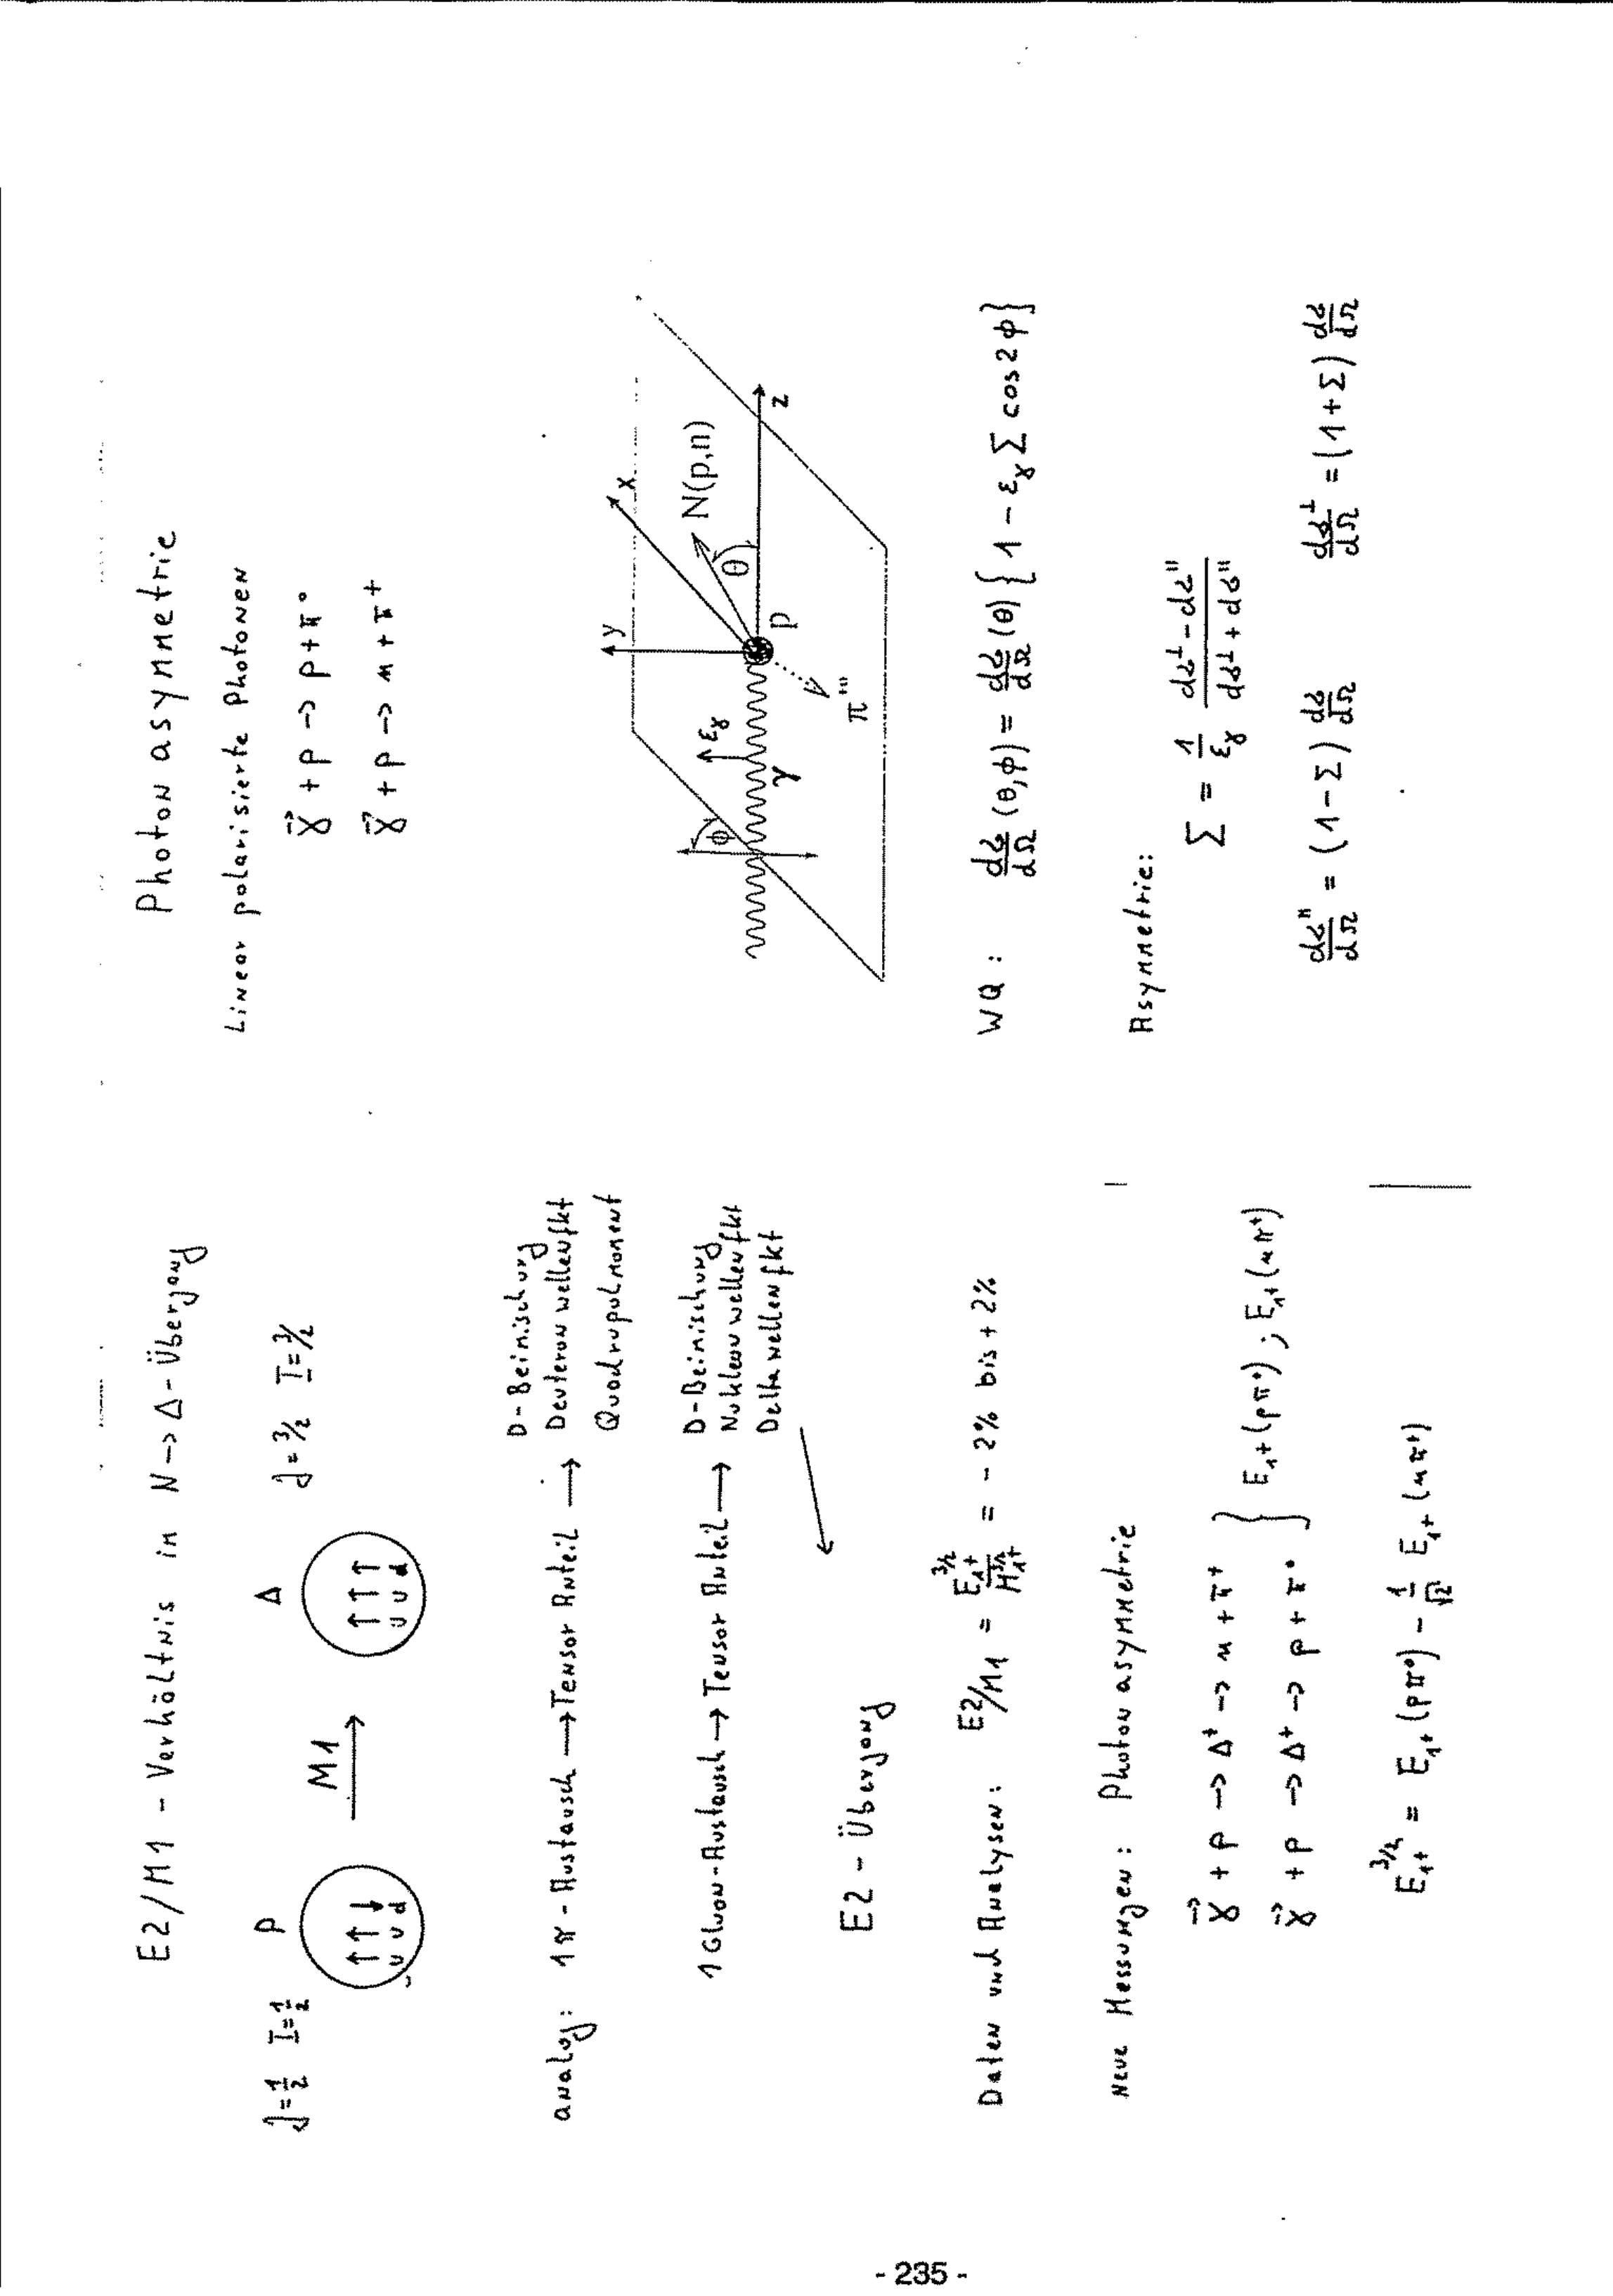 E2/M1 - Verhältnis in N → Δ - Übergang
J=1/2 I=1/2 p M1 Δ J=3/2 I=3/2
↑↑↓ ↑↑↑
u u d u u d
analog: 1π-Austausch → Tensor Anteil → D-Beimischung
Deuteronwellenfkt
Quadrupolmoment
1 Gluon-Austausch → Tensor Anteil → D-Beimischung
Nukleonwellenfkt
Deltawellenfkt
E2 - Übergang
Daten und Analysen: E2/M1 = E₁₊^3/2 / M₁₊^3/2 = -2% bis +2%
Neue Messungen: Photonasymmetrie
γ⃗ + p → Δ⁺ → n + π⁺
γ⃗ + p → Δ⁺ → p + π⁰ } E₁₊(pπ⁰) ; E₁₊(nπ⁺)
E₁₊^3/2 = E₁₊(pπ⁰) - 1/√2 E₁₊(nπ⁺)
Photonasymmetrie
Linear polarisierte Photonen
γ⃗ + p → p + π⁰
γ⃗ + p → n + π⁺
y
x
N(p,n)
ε_γ
ϕ
θ
z
γ
p
π
WQ: dσ/dΩ (θ,ϕ) = dσ/dΩ (θ) { 1 - ε_γ Σ cos 2ϕ }
Asymmetrie:
Σ = 1/ε_γ (dσ^⊥ - dσ^∥)/(dσ^⊥ + dσ^∥)
dσ^∥/dΩ = (1 - Σ) dσ/dΩ dσ^⊥/dΩ = (1 + Σ) dσ/dΩ
- 235 -